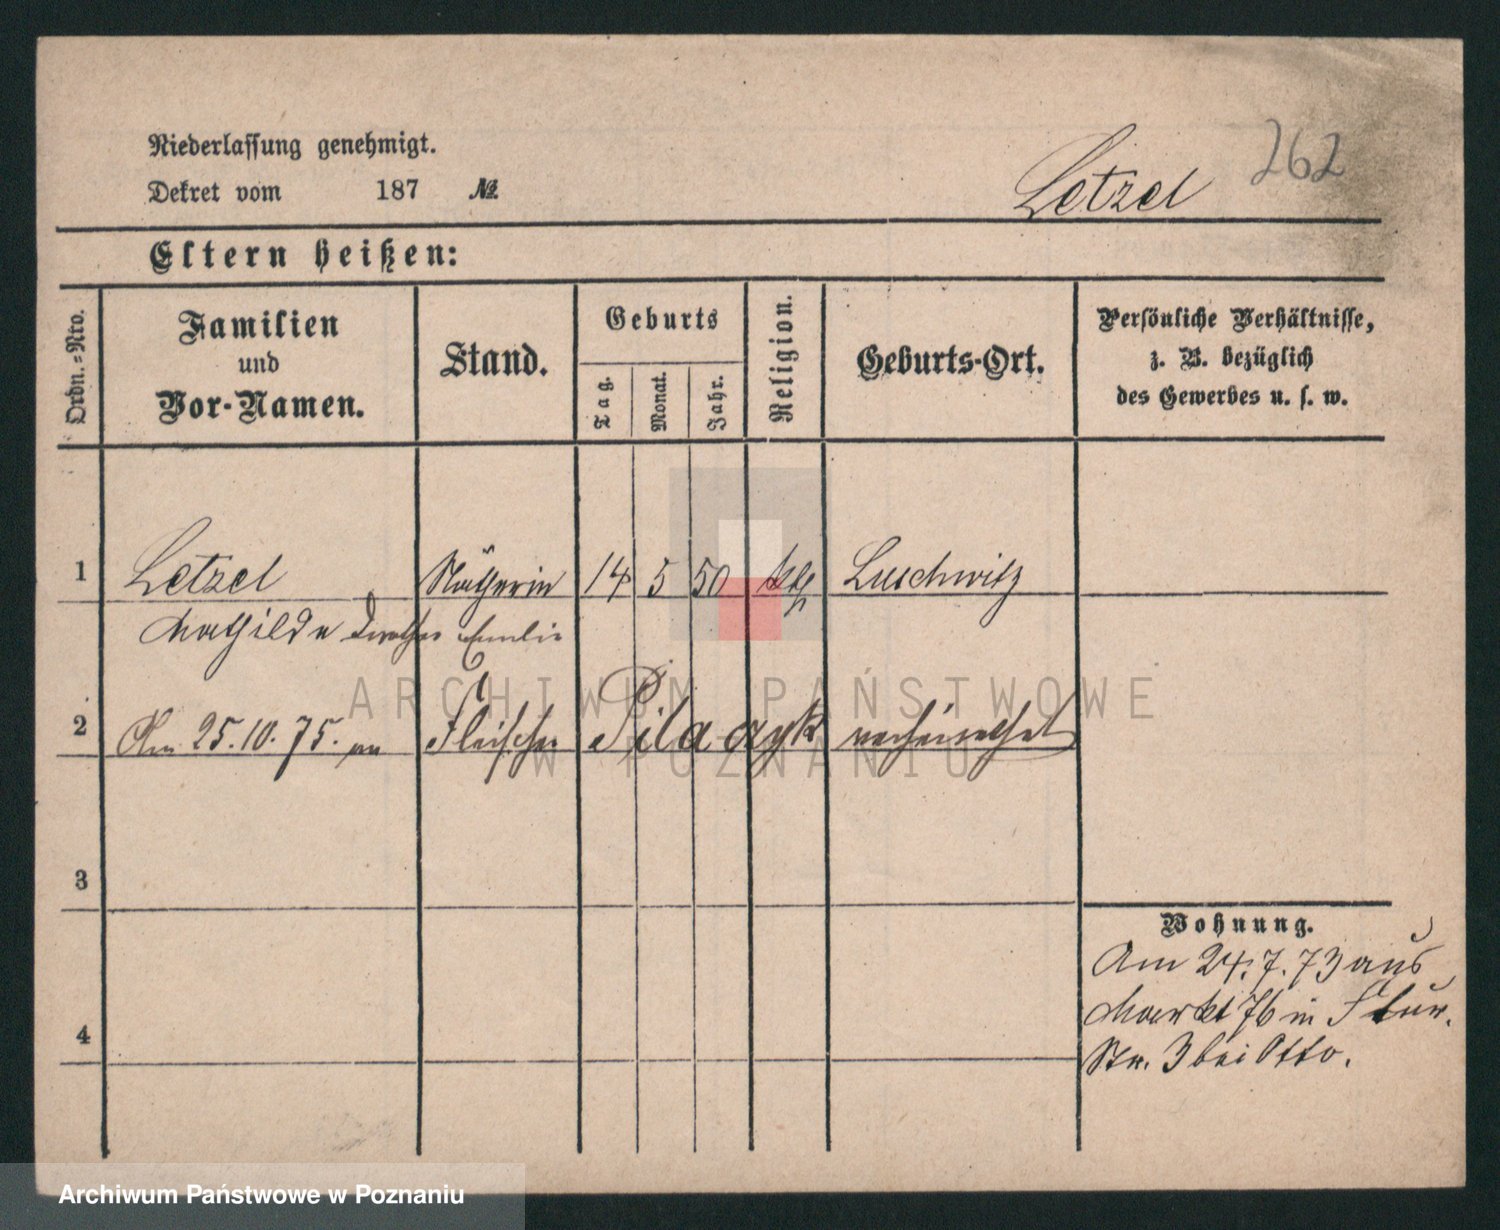 262
Niederlassung genehmigt.
Dekret vom 187 №
Letzel
Eltern heißen:
Ordn.=Nro.
Familien und Vor-Namen.
Stand.
Geburts
Tag. Monat. Jahr.
Religion.
Geburts-Ort.
Persönliche Verhältnisse,
z. B. bezüglich
des Gewerbes u. s. w.
1 Letzel Nätherin 14 5 50 Luschwitz
Mathilde Dorothea Emilie
2 Am 25.10.75. an Fleischer Pilaczyk verheirathet
3
4
Wohnung.
Am 24.7.73 aus
Markt 76 in
Str. 3 bei Otto.
ARCHIWUM PAŃSTWOWE
W POZNANIU
Archiwum Państwowe w Poznaniu